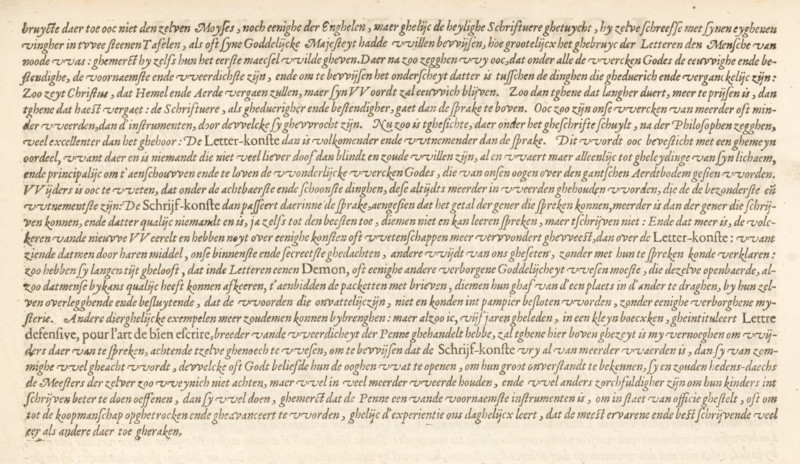 bruycte daer toe ooc niet den zelven Moyses, noch eenighe der Enghelen, maer ghelijc de heylighe Schriftuere ghetuycht, hy zelve schreefse met synen eyghenen
vingher in tvvee steenen Tafelen, als oft syne Goddelijcke Majesteyt hadde vvillen bevvijsen, hoe grootelijcx het ghebruyc der Letteren den Mensche van
noode vvas: ghemerct hy zelfs hun het eerste maecsel vvilde gheven. Daer na zoo zegghen vvy ooc, dat onder alle de vvercken Godes de eeuvvighe ende be-
stendighe, de voornaemste ende vveerdichste zijn, ende om te bevvijsen het onderscheyt datter is tusschen de dinghen die gheduerich ende verganckelijc zijn:
Zoo zeyt Christus, dat Hemel ende Aerde vergaen zullen, maer syn VVoordt zal eeuvvich blijven. Zoo dan tghene dat langher duert, meer te prijsen is, dan
tghene dat haest vergaet: de Schriftuere, als gheduerigher ende bestendigher, gaet dan de sprake te boven. Ooc zoo zijn onse vvercken van meerder oft min-
der vveerden, dan d'instrumenten, door devvelcke sy ghevvrocht zijn. Nu zoo is tghesichte, daer onder het gheschrifte schuylt, na der Philosophen zegghen,
veel excellenter dan het ghehoor: De Letter-konste dan is volkomender ende vvtnemender dan de sprake. Dit vvordt ooc bevesticht met een ghemeyn
oordeel, vvant daer en is niemandt die niet veel liever doof dan blindt en zoude vvillen zijn, al en vvaert maer alleenlijc tot gheleydinge van syn lichaem,
ende principalijc om t'aenschouvven ende te loven de vvonderlijcke vvercken Godes, die van onsen oogen over den gantschen Aerdtbodem gesien vvorden.
VVijders is ooc te vveten, dat onder de achtbaerste ende schoonste dinghen, dese altijdts meerder in vveerden ghehouden vvorden, die de bezonderste en̄
vvtnementste zijn: De Schrijf-konste dan passeert daerinne de sprake, aengesien dat het getal der gener die spreken konnen, meerder is dan der gener die schrij-
ven konnen, ende datter qualijc niemandt en is, ja zelfs tot den beesten toe, diemen niet en kan leeren spreken, maer t'schrijven niet: Ende dat meer is, de volc-
keren vande nieuvve VVeerelt en hebben noyt over eenighe konsten oft vvetenschappen meer vervvondert ghevveest, dan over de Letter-konste: vvant
ziende datmen door haren middel, onse binnenste ende secreetste ghedachten, andere vvijdt van ons gheseten, zonder met hun te spreken konde verklaren:
zoo hebben sy langen tijt ghelooft, dat inde Letteren eenen Demon, oft eenighe andere verborgene Goddelijcheyt vvesen moeste, die dezelve openbaerde, al-
zoo datmense bykans qualijc heeft konnen afkeeren, t'aenbidden de packetten met brieven, diemen hun ghaf van d'een plaets in d'ander te draghen, by hun zel-
ven overlegghende ende besluytende, dat de vvoorden die onvattelijc zijn, niet en konden int pampier besloten vvorden, zonder eenighe verborghene my-
sterie. Andere dierghelijcke exempelen meer zoudemen konnen bybrenghen: maer alzoo ic, vijf jaren gheleden, in een kleyn boecxken, gheintituleert Lettre
defensive, pour l'art de bien escrire, breeder vande vveerdicheyt der Penne ghehandelt hebbe, zal tghene hier boven ghezeyt is my vernoeghen om vvij-
ders daer van te spreken, achtende tzelve ghenoech te vvesen, om te bevvijsen dat de Schrijf-konste vry al van meerder vvaerden is, dan sy van zom-
mighe vvel gheacht vvordt, devvelcke oft Godt beliefde hun de ooghen vvat te openen, om hun groot onverstandt te bekennen, sy en zouden hedens-daechs
de Meesters der zelver zoo vveynich niet achten, maer vvel in veel meerder vveerde houden, ende vvel anders zorchfuldigher zijn om hun kinders int
schrijven beter te doen oeffenen, dan sy vvel doen, ghemerct dat de Penne een vande voornaemste instrumenten is, om in staet van officie ghestelt, oft om
tot de koopmanschap opghetrocken ende gheavanceert te vvorden, ghelijc d'experientie ons daghelijcx leert, dat de meest ervarene ende best schrijvende veel
eer als andere daer toe gheraken.